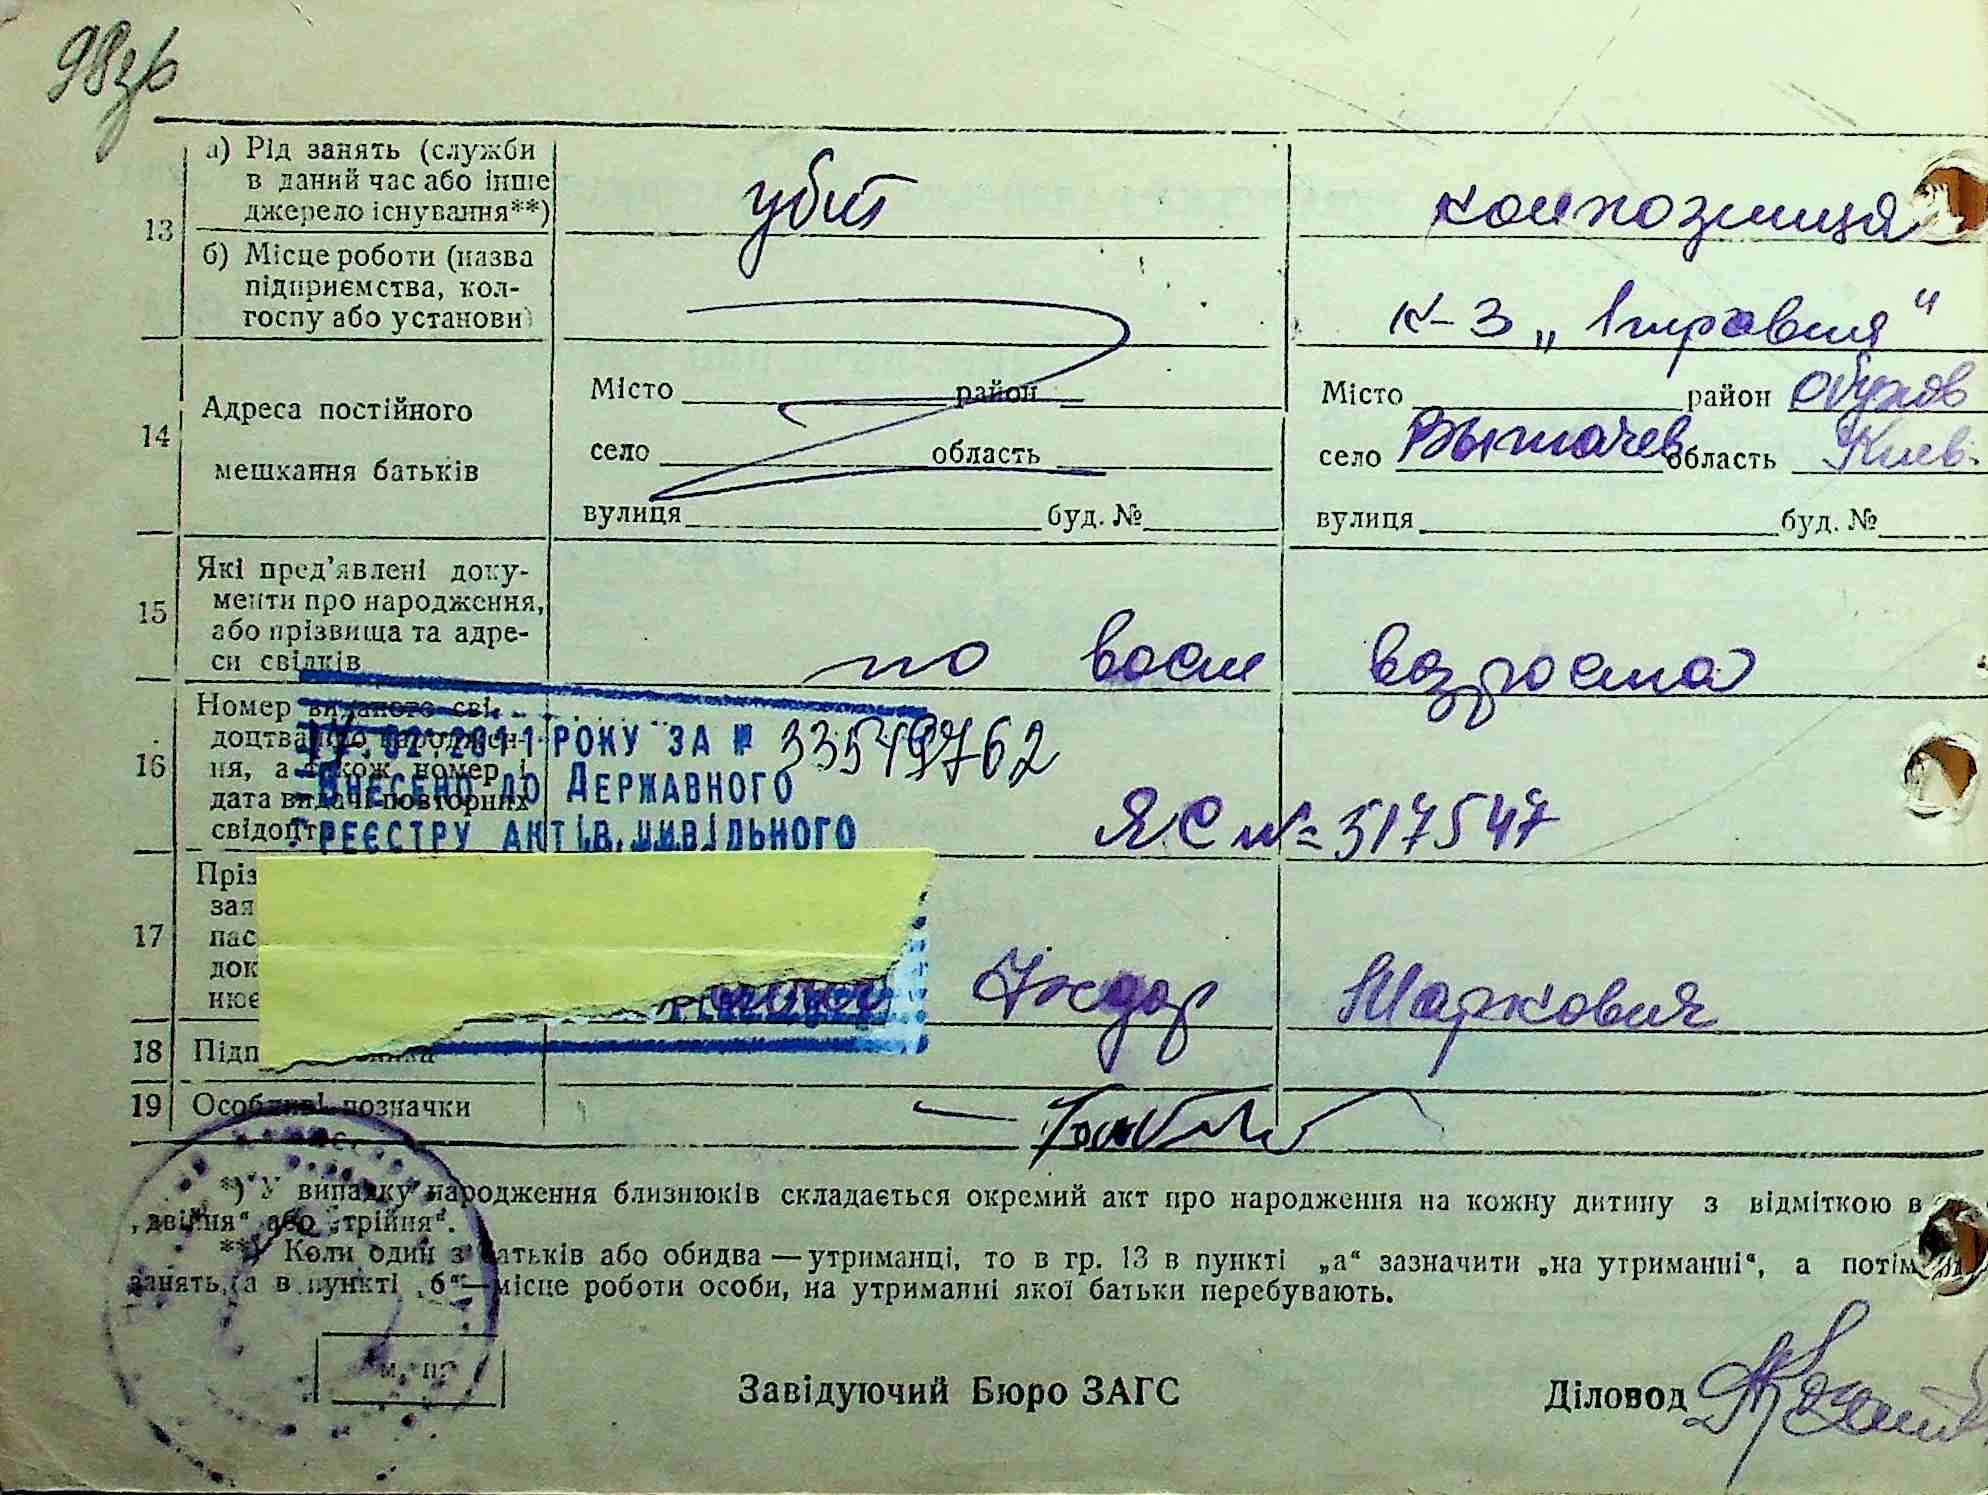 98зр
13
а) Рід занять (служби
в даний час або інше
джерело існування**)
убит
колхозница
б) Місце роботи (назва
підприємства, кол-
госпу або установи)
к-з „1 травня“
14
Адреса постійного
мешкання батьків
Місто район
село область
вулиця буд. №
Місто район Обухов
село Вытачев область Киев.
вулиця буд. №
15
Які пред’явлені доку-
менти про народження,
або прізвища та адре-
си свідків
по восст возраста
16
Номер виданого сві-
доцтва про народжен-
ня, а також номер і
дата видачі повторних
свідоцтв
.02.2011 РОКУ ЗА № 33549762
ВНЕСЕНО ДО ДЕРЖАВНОГО
РЕЄСТРУ АКТІВ ЦИВІЛЬНОГО
ЯС № 517547
17
Пріз
зая
пас
док
нює
Маркович
18
Підп
19 Особливі позначки
*) У випадку народження близнюків складається окремий акт про народження на кожну дитину з відміткою в
„двійня“ або „трійня“.
**) Коли один з батьків або обидва — утриманці, то в гр. 13 в пункті „а“ зазначити „на утриманні“, а потім
занять, а в пункті „б“ — місце роботи особи, на утриманні якої батьки перебувають.
м. п.
Завідуючий Бюро ЗАГС
Діловод